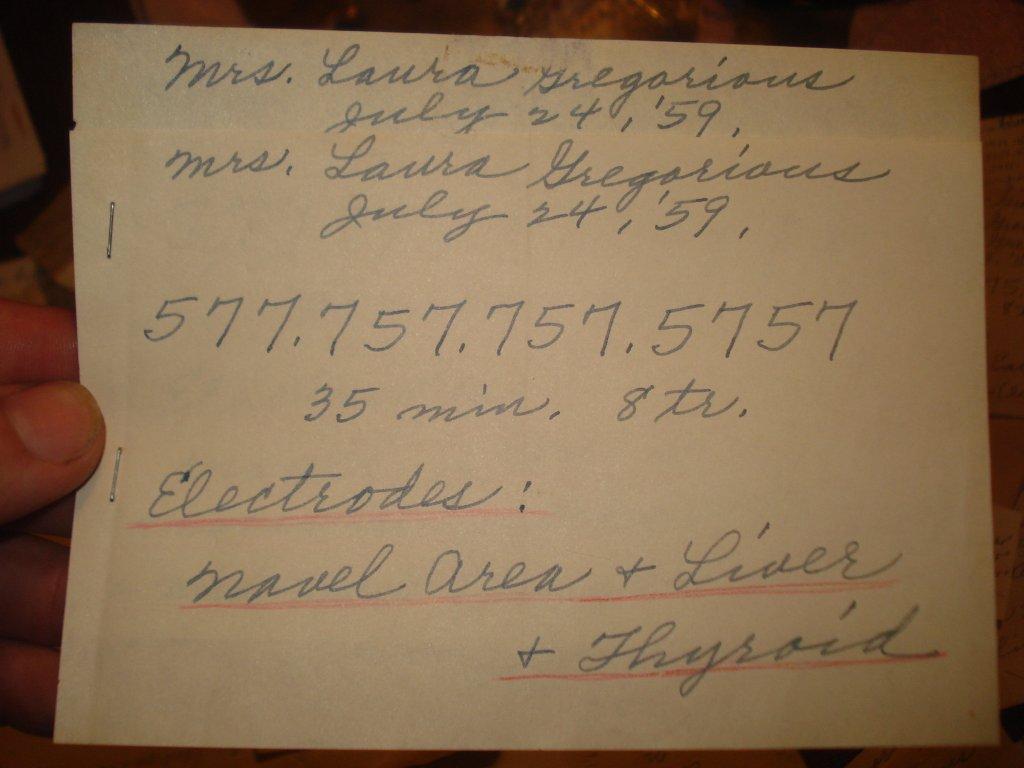 Mrs. Laura Gregorious
July 24, '59.
Mrs. Laura Gregorious
July 24, '59.
577.757.757.5757
35 min. 8 tr.
Electrodes:
Navel Area + Liver
+ Thyroid